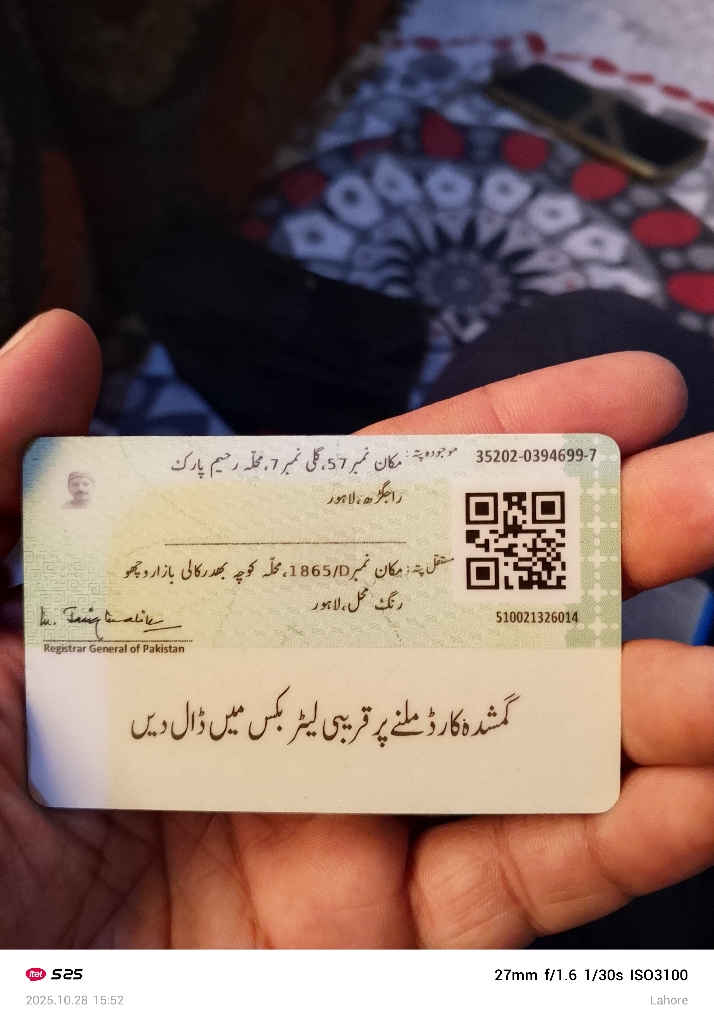 موجودہ پتہ: مکان نمبر 57، گلی نمبر 7، محلّہ رحیم پارک
35202-0394699-7
راجگڑھ، لاہور
مستقل پتہ: مکان نمبر 1865/D، محلّہ کوچہ بھدرکالی بازار وچھو
رنگ محل، لاہور
510021326014
Registrar General of Pakistan
گمشدہ کارڈ ملنے پر قریبی لیٹر بکس میں ڈال دیں
itel S25
27mm f/1.6 1/30s ISO3100
2025.10.28 15:52
Lahore